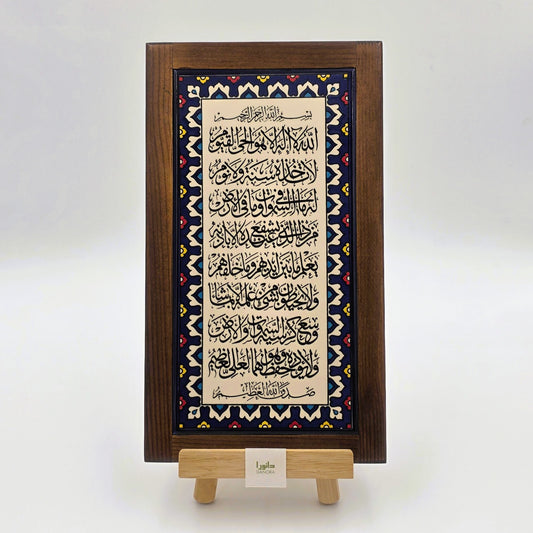 بسم الله الرحمن الرحيم
الله لا اله الا هو الحي القيوم
لا تاخذه سنة ولا نوم
له ما في السموات وما في الارض
من ذا الذي يشفع عنده الا باذنه
يعلم ما بين ايديهم وما خلفهم
ولا يحيطون بشيء من علمه الا بما شاء
وسع كرسيه السموات والارض
ولا يؤده حفظهما وهو العلي العظيم
صدق الله العظيم
دانورا
DANORA